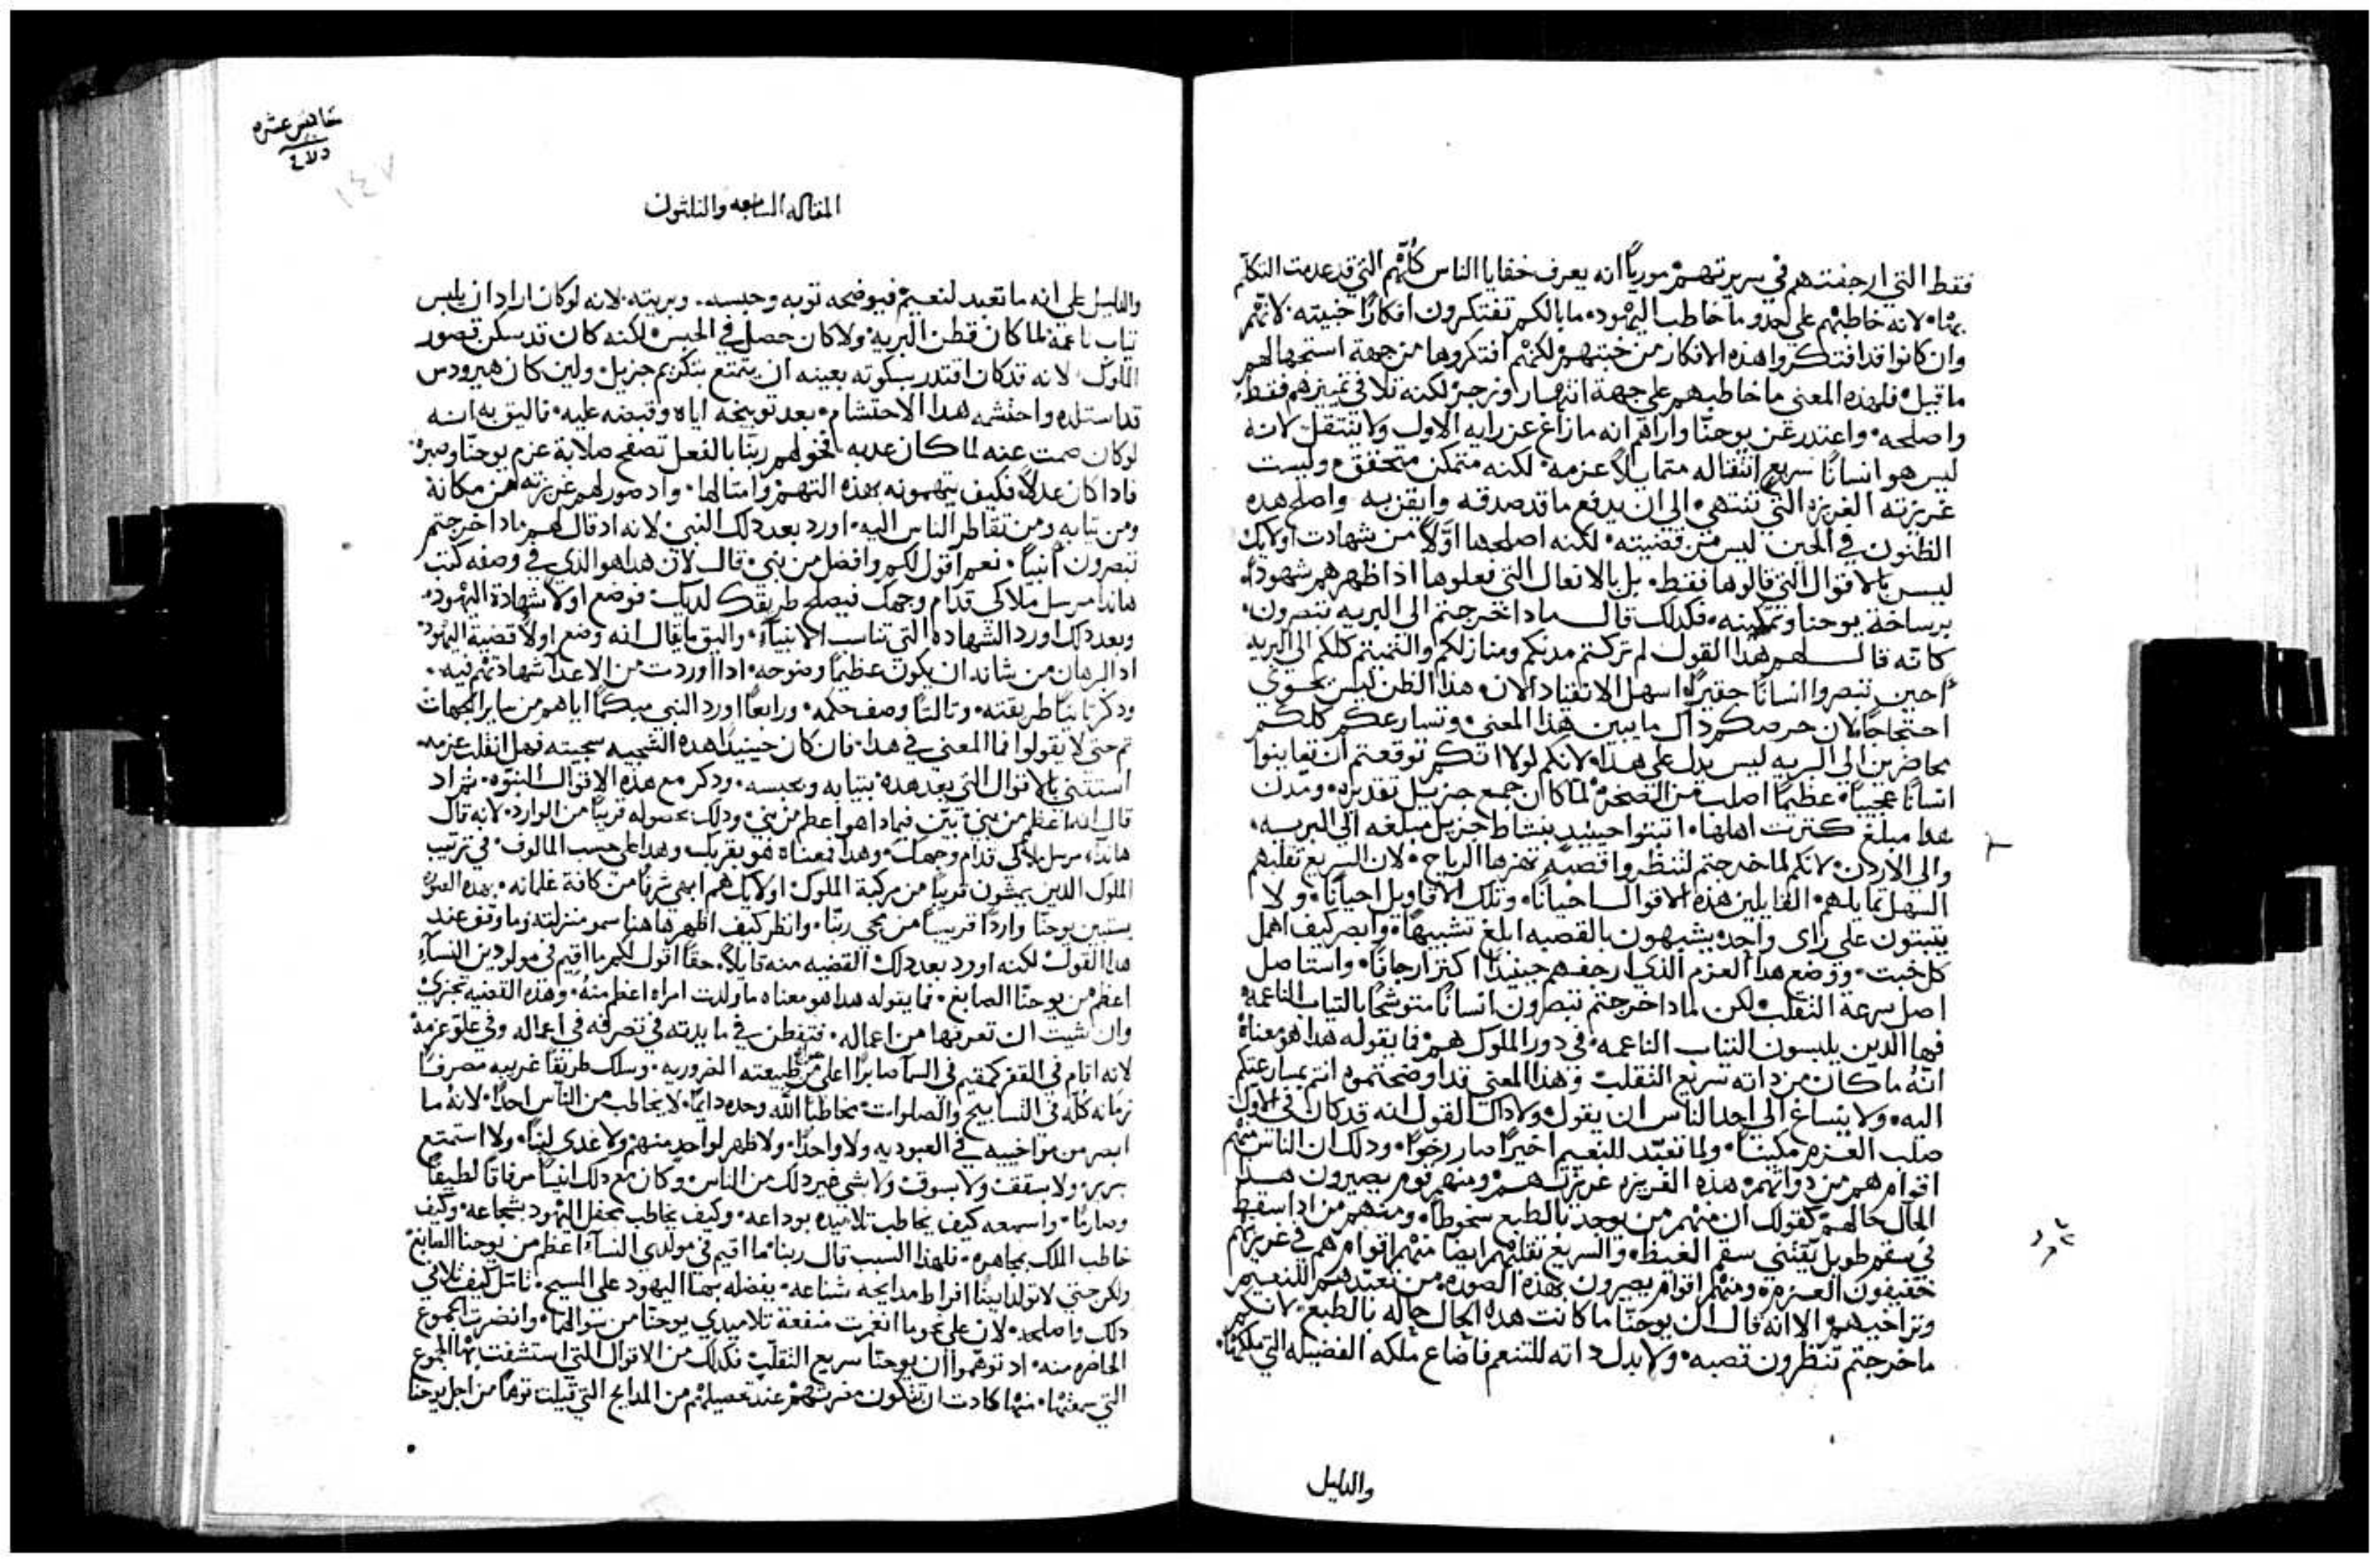 فقط التي ارجفتهم في سريرتهم موريًا انه يعرف خفايا الناس كلهم التي قد عدمت التكلم
بها، لانه خاطبهم على احد وما خاطب اليهود، ما بالكم تفتكرون افكارًا خبيثه، لانهم
وان كانوا قد افتكروا هذه الافكار من خبثهم لكنهم افتكروها من جهة استجهالهم
ما قيل، فلهذه المعنى ما خاطبهم على جهة انتهار وزجر، لكنه تلافي تمييزهم فقط،
واصلحه، واعتذر عن يوحنّا واراهم انه ما زاغ عن رايه الاول ولا ينتقل لانه
ليس هو انسانًا سريع انتقاله متمايلًا عزمه، لكنه متمكن متحقق، وليست
غريزته الغريزه التي تنتهي الى ان يدفع ما قد صدقه وايقن به واصلح هده
الظنون في الحين ليس من قضيته، لكنه اصلحها اولًا من شهادت اوليك
ليس بالاقوال التي قالوها فقط، بل بالافعال التي فعلوها اذ اظهرهم شهودًا،
برساخة يوحنا وتمكينه، فكدلك قال مادا خرجتم الى البريه تبصرون،
كانه قال لهم هدا القول لم تركتم مدنكم ومنازلكم والتميتم كلكم الى البريه
احين تبصروا انسانًا حقيرًا، اسهل الانقياد الان، هذا الظن ليس يحوي
احتجاجًا لان حرصكم داك ما يبين هذا المعنى، وتسارعكم كلكم
محاضرين الى البريه ليس يدل على هدا، لانكم لولا انكم توقعتم ان تعاينوا
انسانًا عجيبًا، عظيمًا اصلب من الصخره لما كان جمع جزيل تقديره، ومدن
هدا مبلغ كترت اهلها، انبتوا حينيد بنشاط جزيل مبلغه الى البريه،
والى الاردن، لانكم لما خرجتم لتنظروا قصبه تهزها الرياح، لان السريع تقلبهم
السهل تمايلهم، القايلين هذه الاقوال احيانًا، وتلك الاقاويل احيانًا، ولا
يتبتون على راي واحد، يشبهون بالقصبه ابلغ تشبيهًا، وابصر كيف اهمل
كل خبت، ووضع هدا العزم الذي ارجفهم حينيدًا اكتر ارجافًا، واستاصل
اصل سرعة التقلب، لكن لمادا خرجتم تبصرون انسانًا متوشحًا بالتياب الناعمه
فها الدين يلبسون التياب الناعمه، في دور الملوك هم، فما يقوله هدا هو معناه
انّه ما كان من داته سريع التقلب، وهذا المعنى قد اوضحتموه انتم بمسارعتكم
اليه، ولا ينساغ الى احد الناس ان يقول ولا داك القول انه قد كان في الاول
صلب العزم مكينًا، ولما تعبّد للنعيم اخيرًا صار رخوًا، ودلك ان الناس منهم
اقوام هم من دواتهم، هذه الغريزه غريزتهم، ومنهم قوم يصيرون هدا
الحال حالهم، كقولك ان منهم من يوجد بالطبع سخوطًا، ومنهم من ادا سقط
في سقم طويل يقتني سقم الغيظ، والسريع تقلبهم ايضا منهم اقوام هم في غريزتهم
خفيفون العزم، ومنهم اقوام يصيرون بهذه الصوره، من تعبدهم للنعيم
وتراخيهم، الا انه قال ان يوحنّا ما كانت هده الحال حاله بالطبع، لانكم
ما خرجتم تنظرون قصبه، ولا بدل داته للتنعم فاضاع ملكه الفضيله التي ملكها،
والدليل
خامس عشره
١٤٧
المقاله السابعه والتلتون
والدليل على انه ما تعبد لنعيم فيوضحه توبه وحبسه، وبريته، لانه لو كان اراد ان يلبس
تياب ناعمة، لما كان قطن البريه، ولا كان حصل في الحبس، لكنه كان قد سكن قصور
الملوك، لانه قد كان اقتدر بسكوته بعينه ان يتمتع بتكريم جزيل، ولين كان هيرودس
قد استلده واحتشمه هدا الاحتشام، بعد توبيخه اياه وقبضه عليه، فاليق به انه
لو كان صمت عنه لما كان عدبه، فخولهم ربنا بالفعل تصفح صلابة عزم يوحنّا وصبره،
فادا كان عدلًا فكيف يتهمونه بهذه التهم وامتالها، واد صور لهم غريزته من مكانه
ومن تيابه ومن تقاطر الناس اليه، اورد بعد دلك النبي، لانه اد قال لهم مادا خرجتم
تبصرون أنبيًا، نعم اقول لكم وافضل من نبي، قال لان هدا هو الذي في وصفه كتب
هاندا مرسل ملاكي قدام وجهك فيصلح طريقك لديك، فوضع اولًا شهادة اليهود،
وبعد دلك اورد الشهاده التي تناسب الانبياء، واليق ما يقال انه وضع اولًا قضية اليهود
اد البرهان من شانه ان يكون عظيمًا وضوحه، ادا اوردت من الاعدا شهادتهم فيه،
ودكر تانيًا طريقته، وتالتًا وصف حكمه، ورابعًا اورد النبي مبكمًا اياهم من ساير الجهات
تم حتى لا يقولوا فما المعنى في هدا، فان كان حينيدًا هده السجيه سجيته فهل انقلب عزمه
استتنى بالاقوال التي بعد هده، بتيابه وبحبسه، ودكر مع هذه الاقوال النبوه، تم اد
قال انه اعظم من نبي، بيّن فبمادا هو اعظم من نبي، ودلك بحصوله قريبًا من الوارد، لانه قال
هاندا مرسل ملاكي قدام وجهك، وهدا فمعناه هو بقربك، وهدا على حسب المالوف، في ترتيب
الملوك الدين يمشون قريبًا من مركبة الملوك، اوليك هم ابهى شرفًا من كافة غلمانه، بهده الصوره
يستبين يوحنّا واردًا قريبًا من مجي ربّنا، وانظر كيف اظهر هاهنا سمو منزلته، وما وقف عند
هدا القول، لكنه اورد بعد دلك القضيه منه قايلًا، حقًا اقول لكم ما اقيم في مولودين النسآء
اعظم من يوحنّا الصابغ، فما يقوله هدا هو معناه ما ولدت امراه اعظم منه، وهذه القضيه تجزي
وان شيت ان تعرفها من اعماله، فتفطن في مايدته في تصرفه في اعماله وفي علوّ عزمه
لانه اقام في القفر كمقيم في السما صايرًا اعلى من طبيعته الضروريه، وسلك طريقًا غريبه مصرفًا
زمانه كلّه في التسابيح والصلوات، مخاطبًا اللّه وحده دايمًا، لا يخاطب من النّاس احدًا، لانّه ما
ابصر من مواخييه في العبوديه ولا واحدًا، ولا ظهر لواحد منهم، ولا غدي لبنًا، ولا استمتع
بسرير، ولا بسقف، ولا بسوق، ولا بشي غير دلك من الناس، وكان مع دلك انيسًا مرفاقًا لطيفًا
وصارمًا، واسمعه كيف يخاطب تلاميده بوداعه، وكيف يخاطب محفل اليهود بشجاعه، وكيف
خاطب الملك بمجاهره، فلهذا السبب قال ربنا ما اقيم في مولدي النسآء اعظم من يوحنا الصابغ،
ولكن حتى لا تولد ايضًا افراط مدايحه شناعه، بفضله بها اليهود على المسيح، تامّل كيف تلافي
دلك واصلحه، لان على نحو ما انغمت منفعة تلاميدي يوحنّا من سوالهما، وانضرت الجموع
الحاضره منه، اد توهّموا ان يوحنّا سريع التقلّب، فكدلك من الاقوال التي استشفت بها الجموع
التي سمعتها، منها كادت ان تتكون مضرتهم عند تحصيلهم من المدايح التي قيلت توهمًا من اجل يوحنا